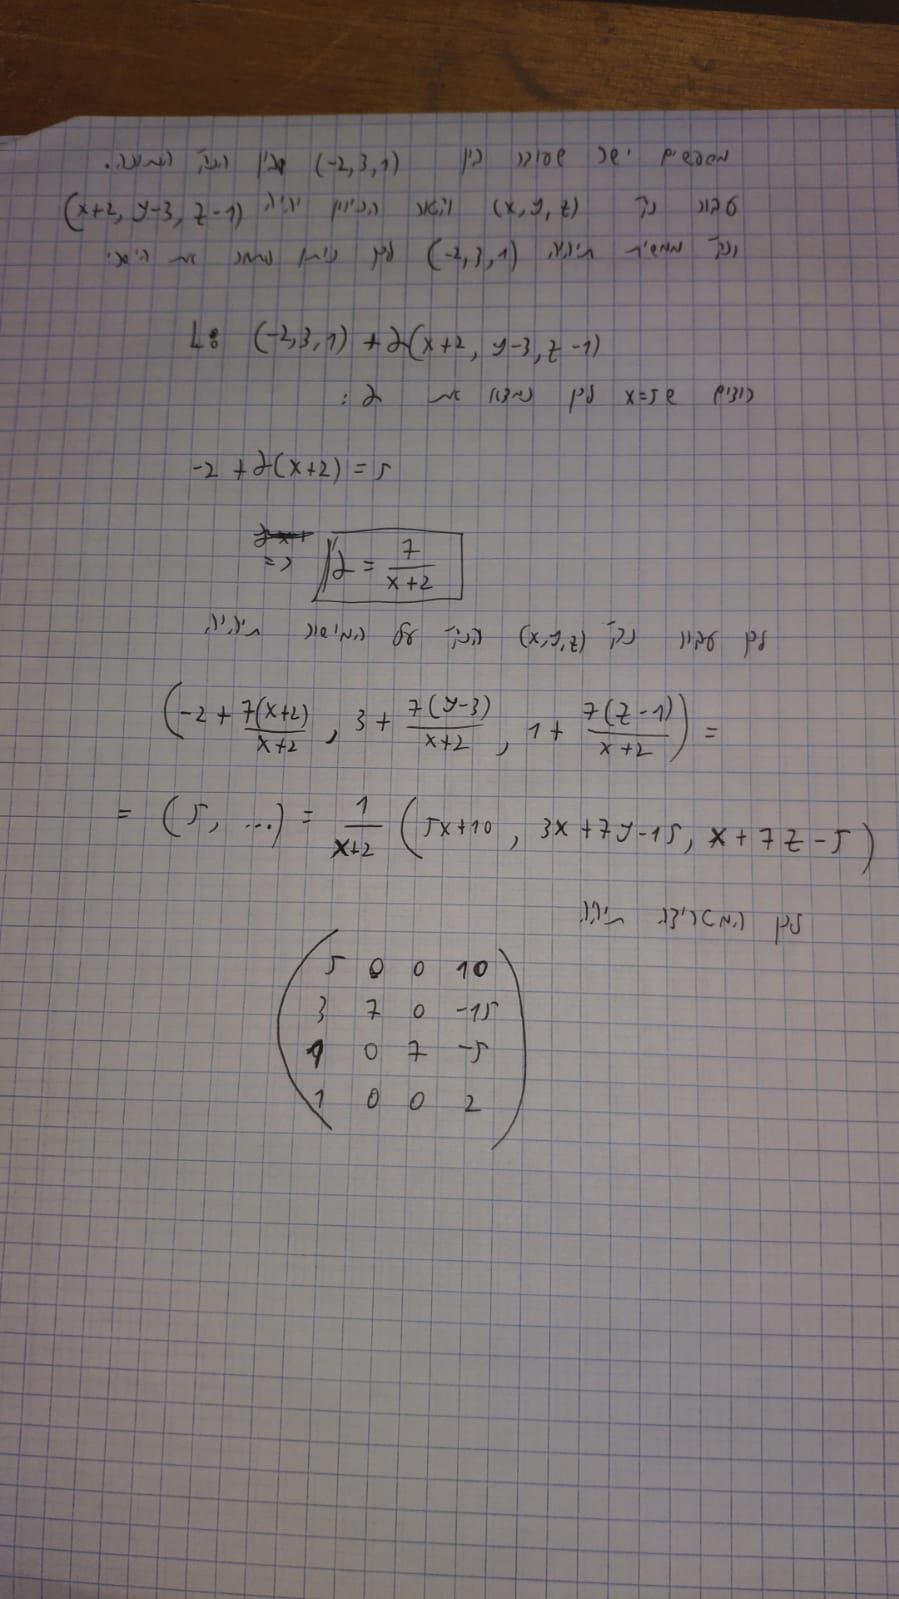 מחפשים ישר שעובר בין (-2,3,1) לבין הנק' הנתונה.
עבור נק' (x,y,z) וקטור הכיוון יהיה (x+2, y-3, z-1)
ונק' תהיה (-2,3,1) לכן ניתן את הישר:
L: (-2,3,1) + λ(x+2, y-3, z-1)
רוצים ש x=5 לכן נמצא את λ:
-2 + λ(x+2) = 5
=> λ = 7/(x+2)
לכן עבור נק' (x,y,z) הנק' על המישור תהיה:
(-2 + 7(x+2)/(x+2), 3 + 7(y-3)/(x+2), 1 + 7(z-1)/(x+2)) =
= (5, ...) = 1/(x+2) (5x+10, 3x+7y-15, x+7z-5)
לכן המטריצה תהיה
5 0 0 10
3 7 0 -15
1 0 7 -5
1 0 0 2